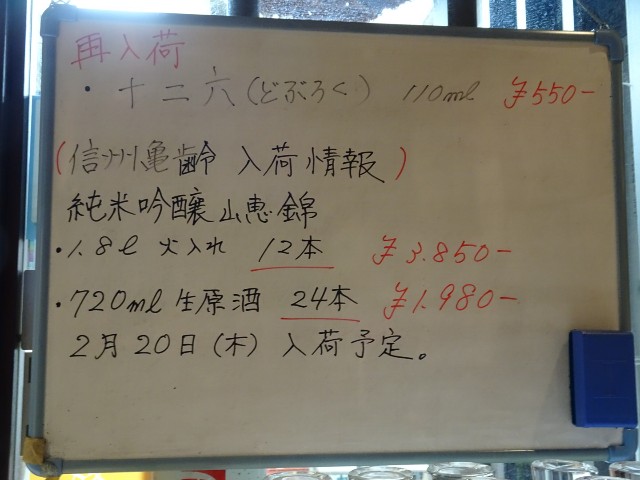 再入荷
・十二六(どぶろく) 110ml ¥550-
(信州亀齢 入荷情報)
純米吟醸 山恵錦
・1.8l 火入れ 12本 ¥3.850-
・720ml 生原酒 24本 ¥1.980-
2月20日(木) 入荷予定。